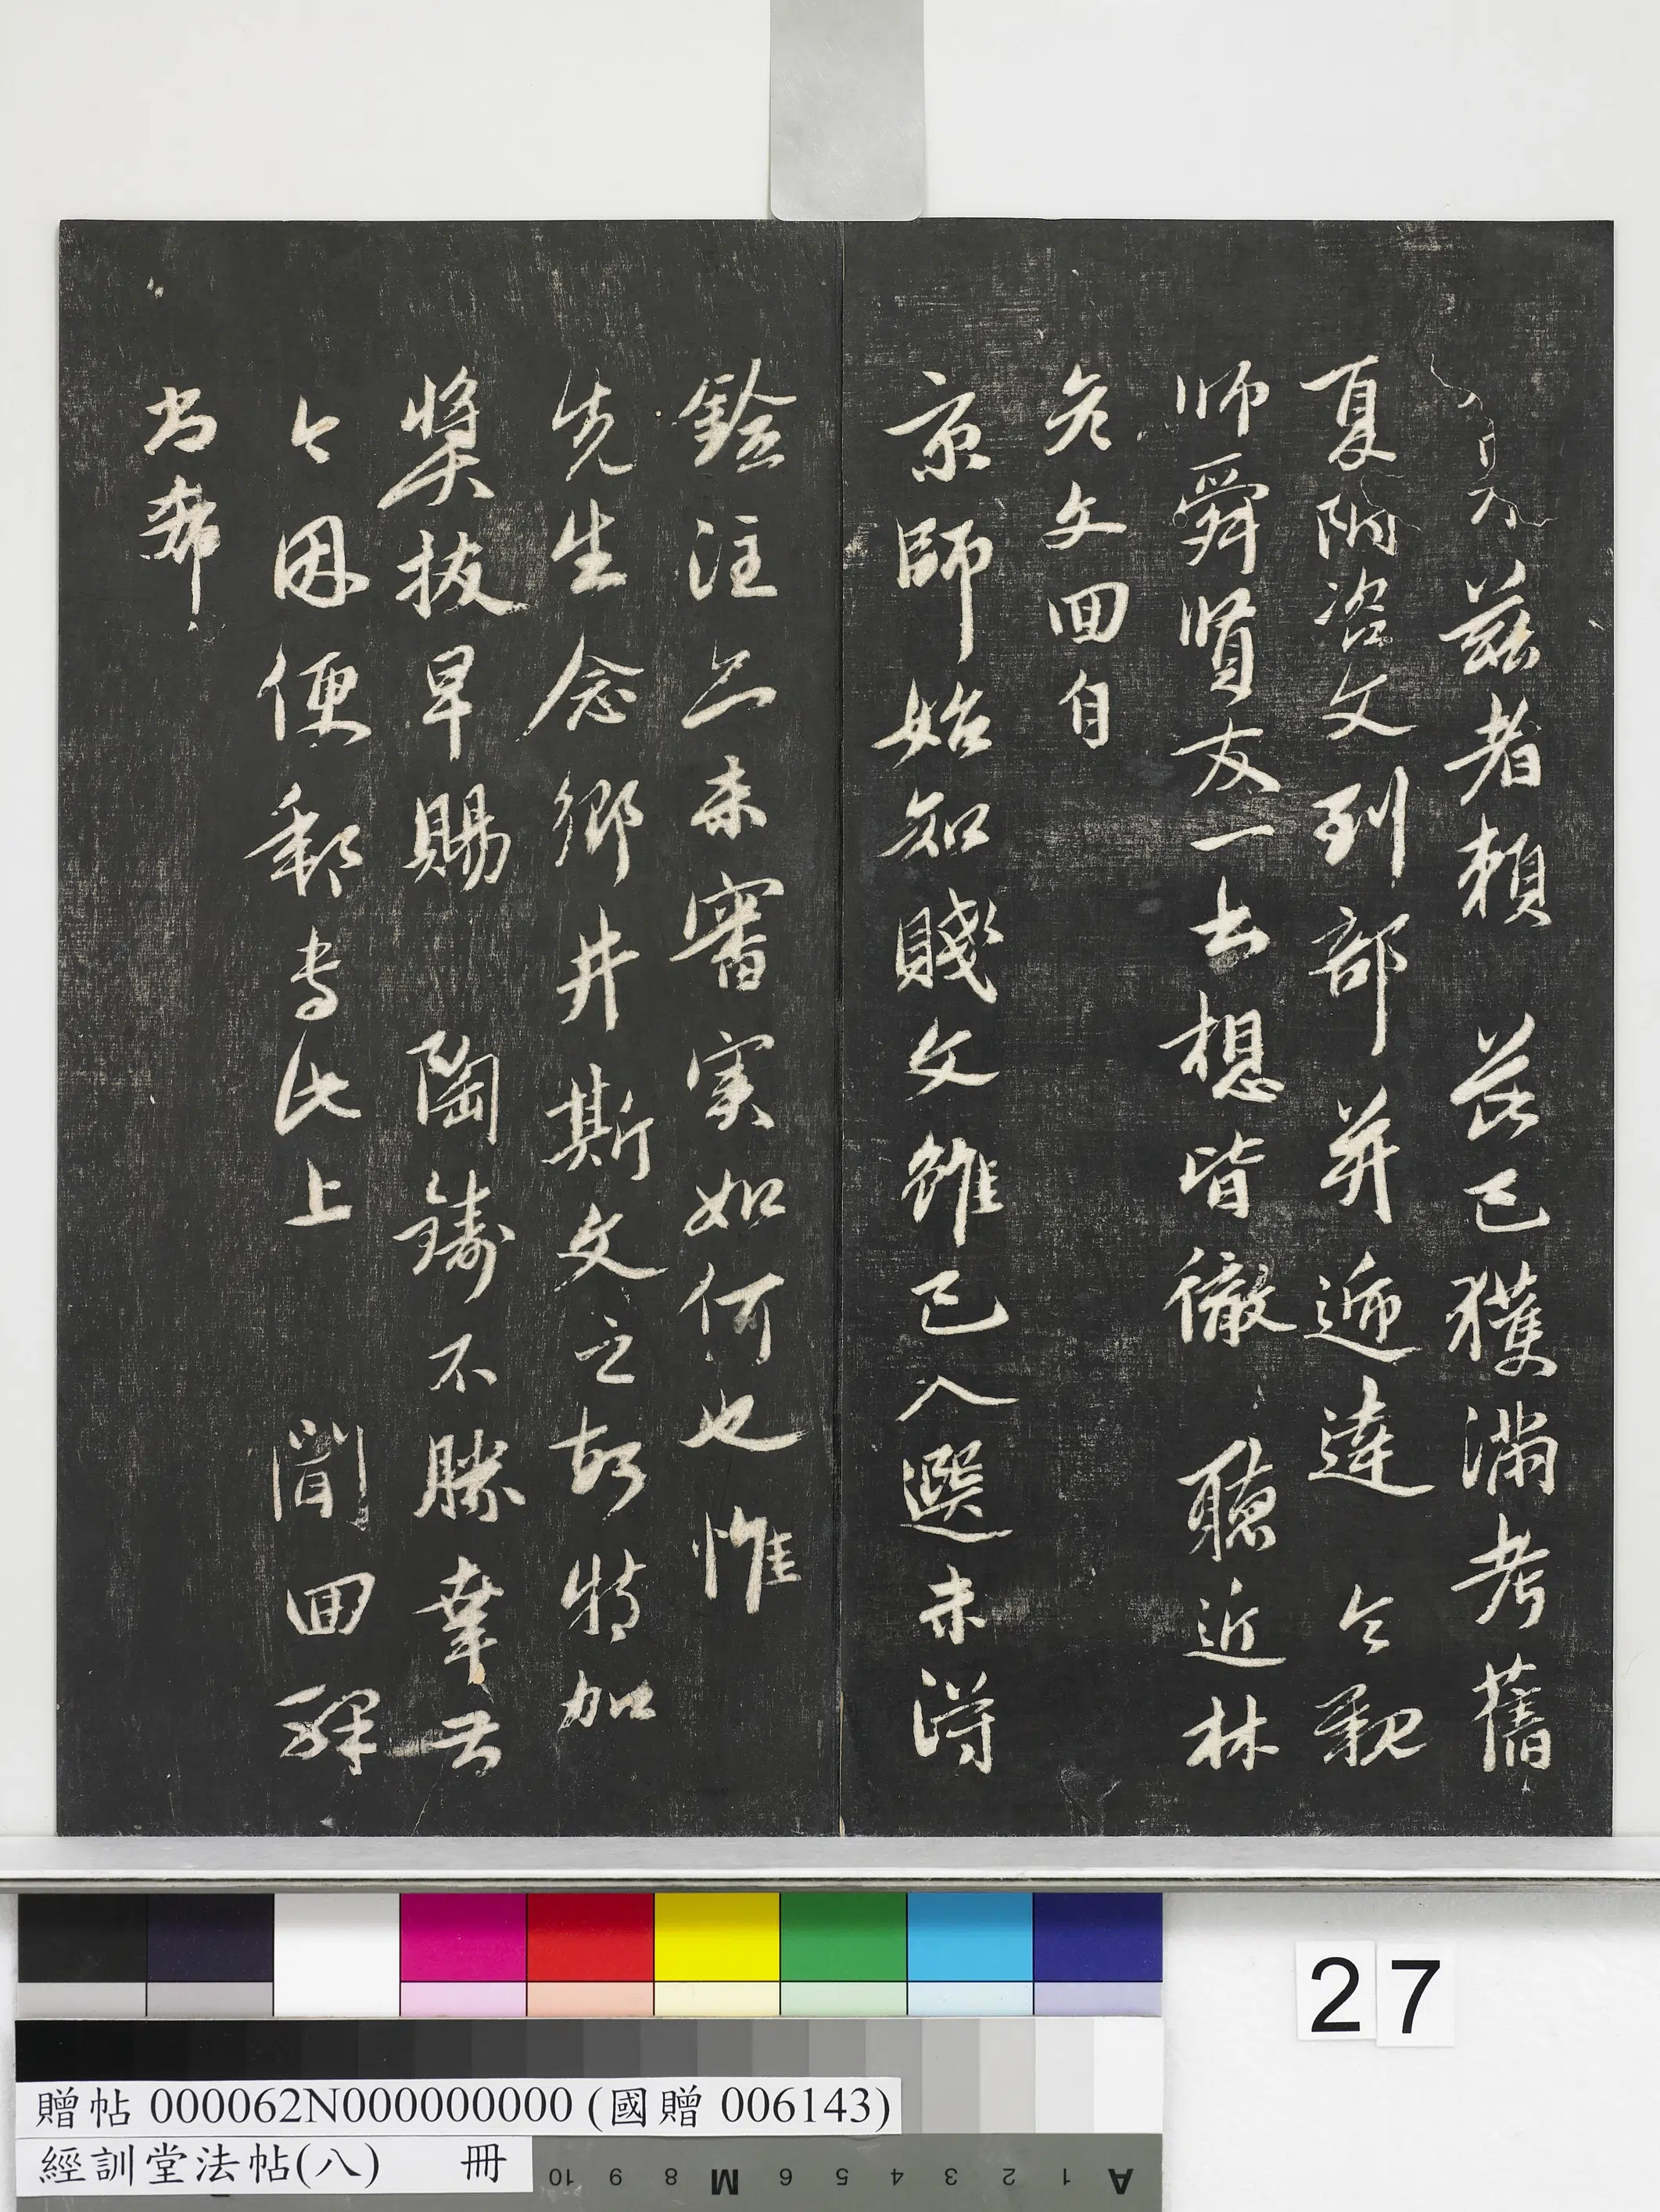 茲者賴 芘已獲滿考舊
夏附咨文到部并遞達 令親
师舜賢友一去想皆徹 聽近林
彥文回自
京師始知賤文雖已入選未得
銓注亦未審实如何也惟
先生念鄉井斯文之故特加
奬拔早賜 陶鑄不勝幸甚
今因便郵专此上 聞四驛
尚希
27
贈帖 000062N000000000 (國贈 006143)
經訓堂法帖(八) 冊
10 9 8 M 6 5 4 3 2 1 A